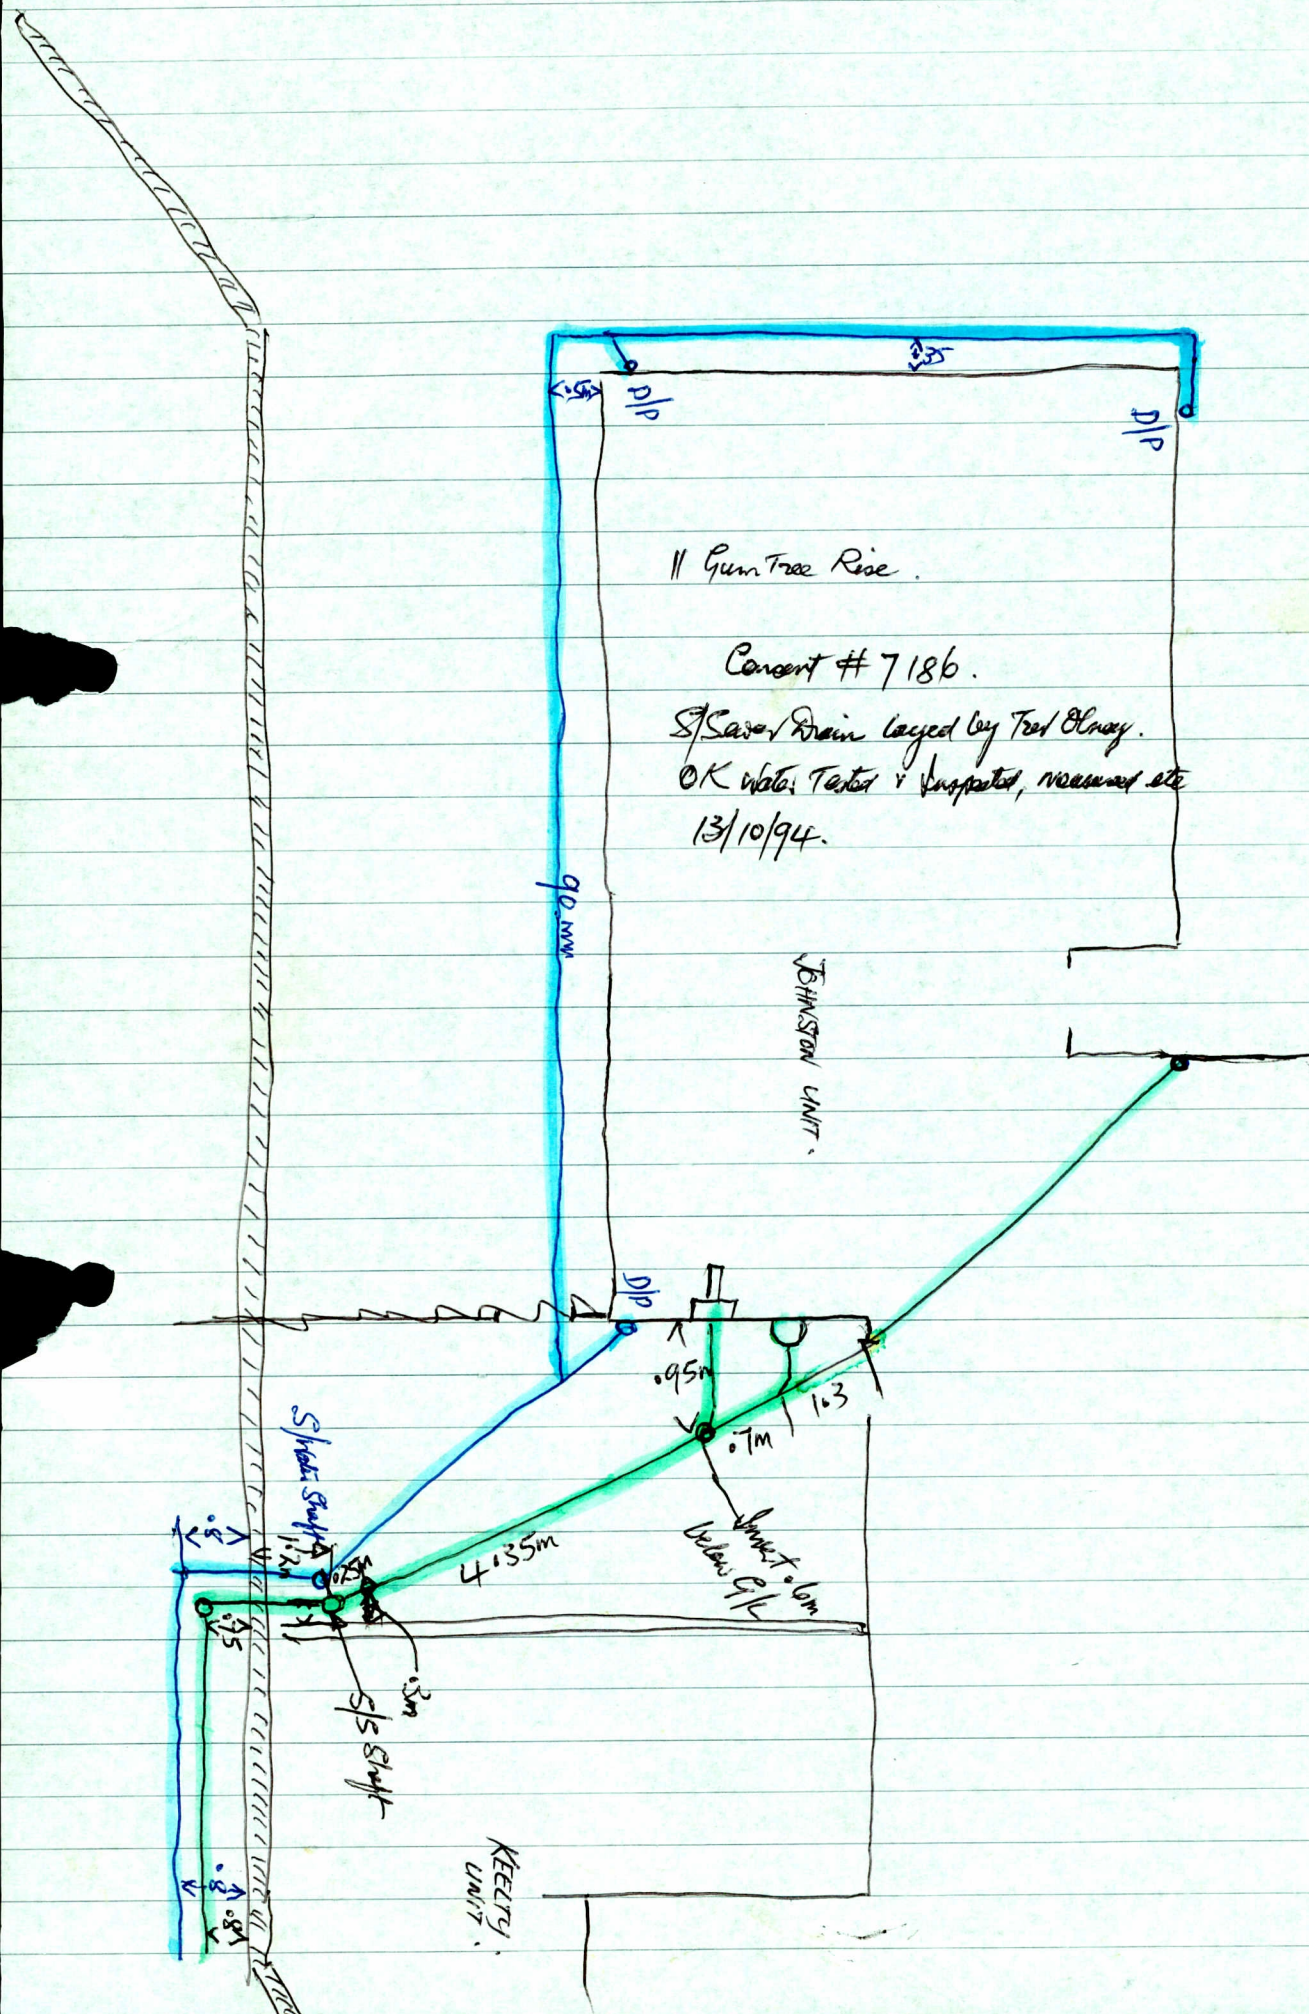 .35
.5m
D/P
D/P
11 Gum Tree Rise.
Consent # 7186.
S/Sewer Drain layed by Trev Olney.
OK Water Tested & Inspected, measured etc
13/10/94.
90mm
JOHNSTON UNIT.
D/P
.95m
1.3
.7m
S/Water Shaft
Invert .6m
below G/L
.8
1.2m
.25
4.35m
.75
.3m
S/S Shaft
KEELTY
UNIT.
.8
.8m